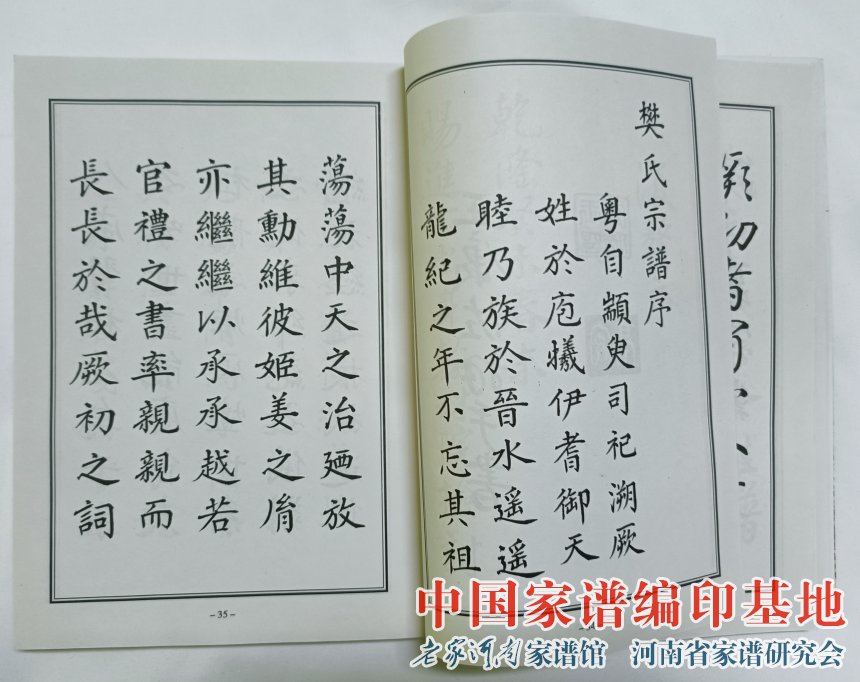 樊氏宗譜序
粵自顓臾司祀溯厥
姓於庖犧伊耆御天
睦乃族於晉水遥遥
龍紀之年不忘其祖
蕩蕩中天之治廼放
其勳維彼姬姜之胤
亦繼繼以承承越若
官禮之書率親親而
長長於哉厥初之詞
-35-
中国家谱编印基地
老家河南家谱馆 河南省家谱研究会